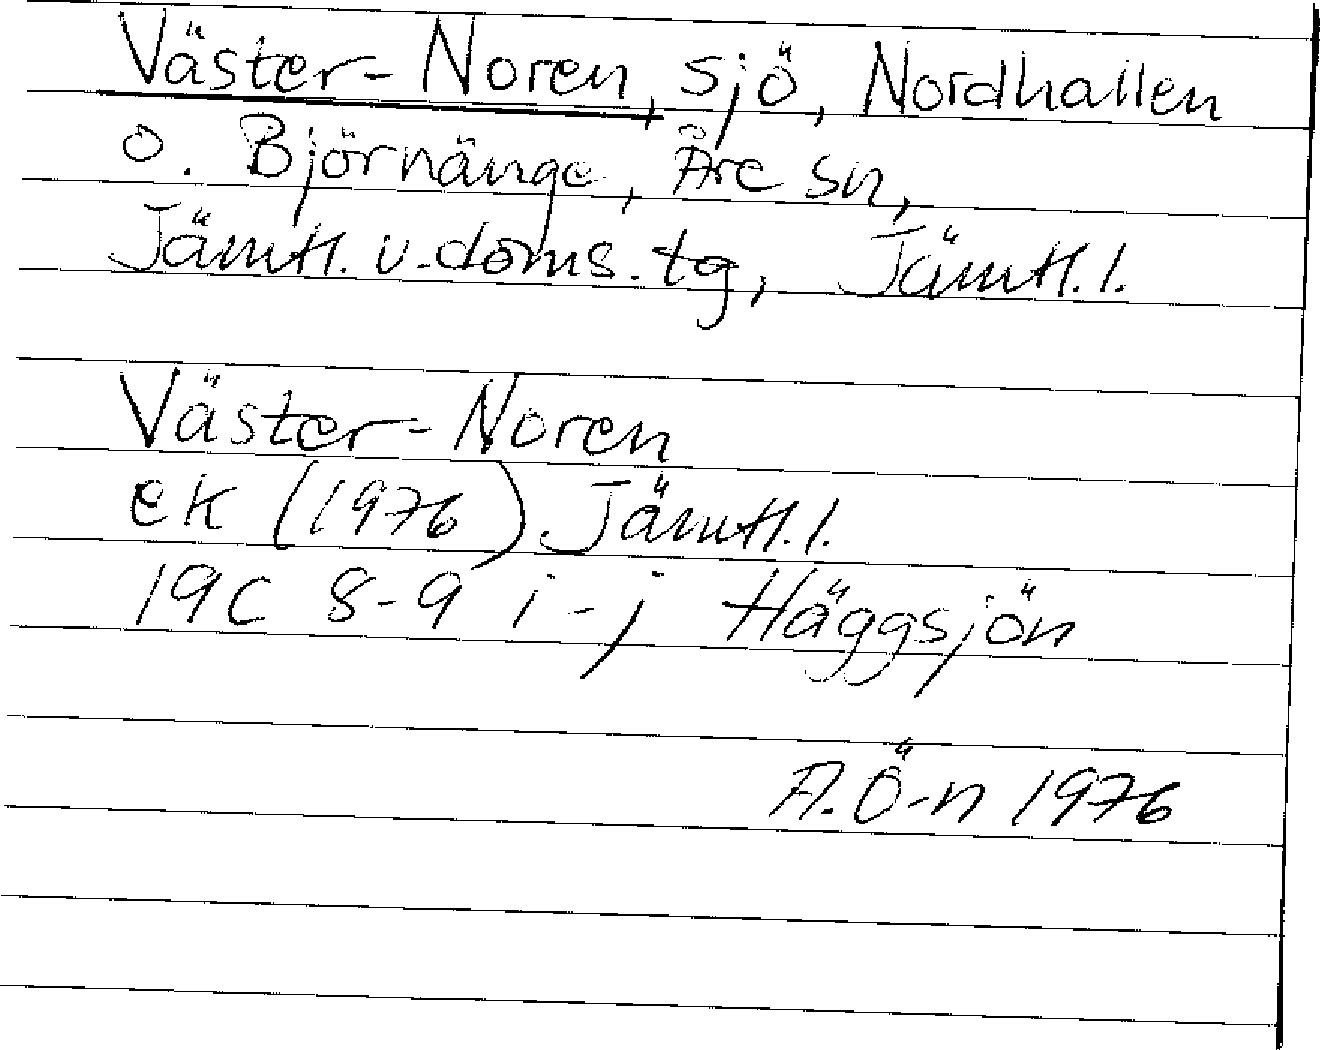 Väster-Noren, sjö, Nordhallen
o. Björnänge, Åre sn,
Jämtl. v. doms. tg, Jämtl. l.
Väster-Noren
ek (1976) Jämtl. l.
19C 8-9 i-j Häggsjön
A. Ö-n 1976